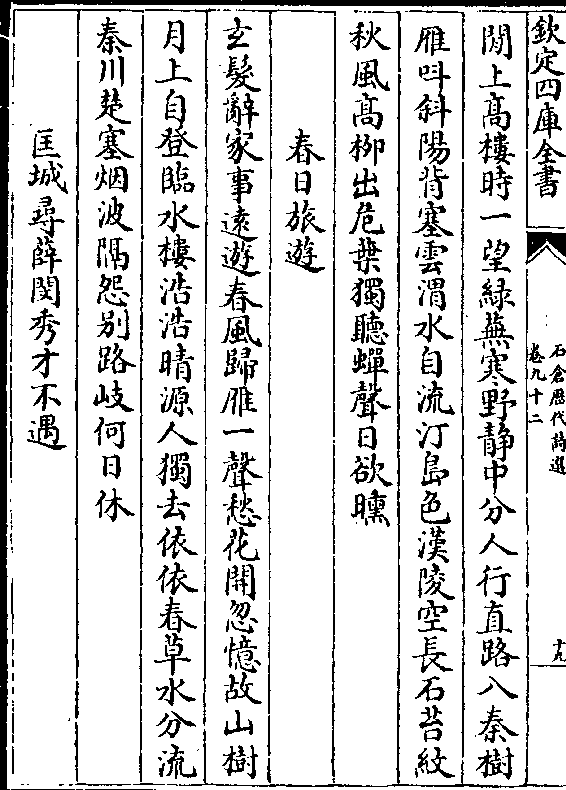 欽定四庫全書
石倉歷代詩選
卷九十二
十九
閒上髙樓時一望綠蕪寒野静中分人行直路入秦樹
雁呌斜陽背塞雲渭水自流汀島色漢陵空長石苔紋
秋風髙栁出危葉獨聽蟬聲日欲曛
春日旅遊
玄髮辭家事逺遊春風歸雁一聲愁花開忽憶故山樹
月上自登臨水樓浩浩晴源人獨去依依春草水分流
秦川楚塞烟波隔怨别路岐何日休
匡城尋薛閔秀才不遇